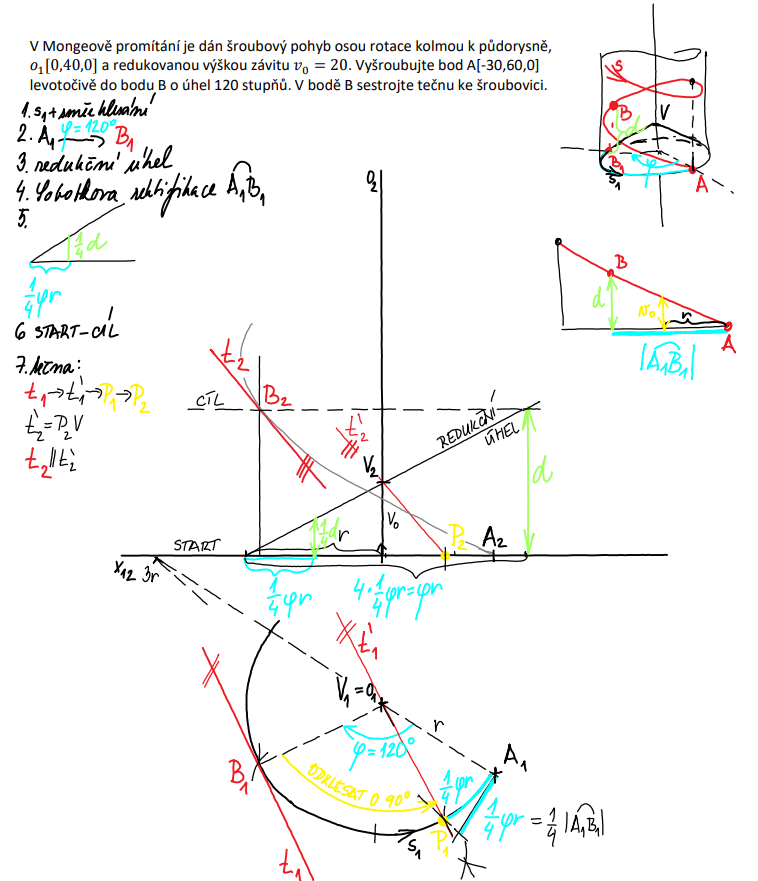 V Mongeově promítání je dán šroubový pohyb osou rotace kolmou k půdorysně,
o₁[0,40,0] a redukovanou výškou závitu v₀ = 20. Vyšroubujte bod A[-30,60,0]
levotočivě do bodu B o úhel 120 stupňů. V bodě B sestrojte tečnu ke šroubovici.
1. s₁ + směr klesání
2. A₁ φ=120° → B₁
3. redukční úhel
4. Sobotkova rektifikace A₁B₁
5.
1/4 d
1/4 φr
6 START-CÍL
7. tečna:
t₁→t₁'→P₁→P₂
t₂'=P₂V
t₂∥t₂'
s
B
V
d
B₁
φ
s₁
A
B
d
v₀
r
A
|A₁B₁|
o₂
t₂
B₂
CÍL
t₂'
REDUKČNÍ
ÚHEL
V₂
d
V₀
1/4 d
r
P₂
A₂
START
x₁₂
3r
1/4 φr
4·1/4 φr=φr
t₁'
V₁=o₁
r
φ=120°
A₁
B₁
ODKLESAT O 90°
1/4 φr
1/4 φr = 1/4 |A₁B₁|
P₁
s₁
t₁